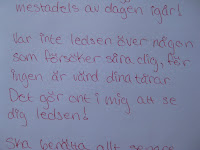 mestadels av dagen igår!
Var inte ledsen över någon
som försöker såra dig, för
ingen är värd dina tårar
Det gör ont i mig att se
dig ledsen!
Ska berätta allt senare